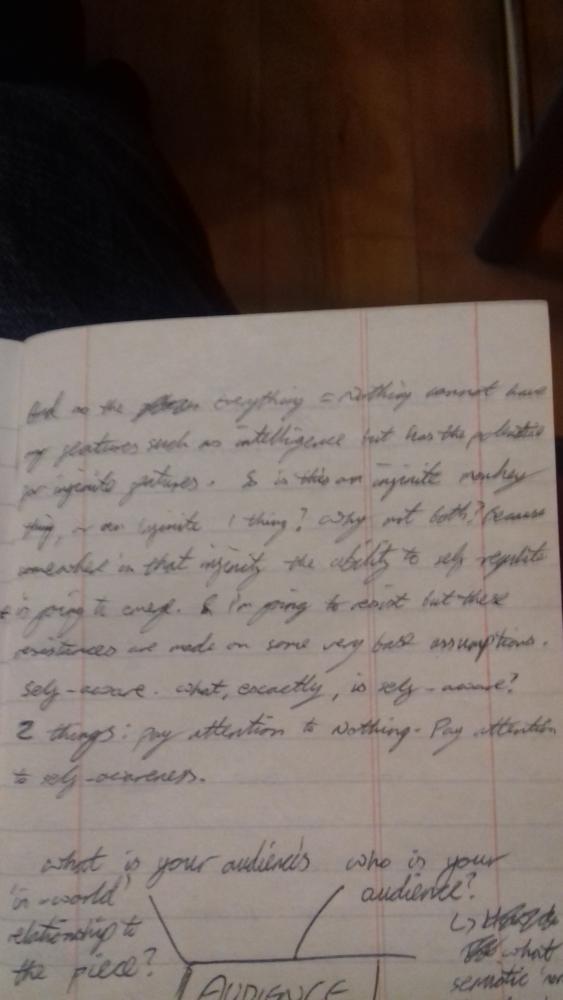 as the Everything = Nothing cannot have
features such as intelligence but has the potential
for infinite features. So is this an infinite monkey
thing, or an infinite 1 thing? Why not both? Because
somewhere in that infinity the ability to self replicate
is going to emerge. & I'm going to resist but these
resistances are made on some very base assumptions.
self-aware. what, exactly, is self-aware?
2 things: pay attention to Nothing. Pay attention
to self-awareness.
what is your audience's
'in-world'
relationship to
the piece?
who is your
audience?
what
semiotic
AUDIENCE